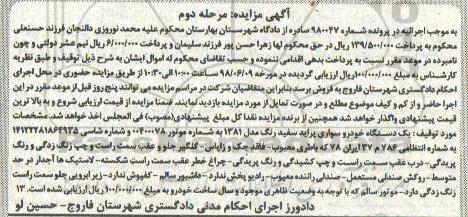 آگهی مزایده: مرحله دوم
به موجب اجرائیه در پرونده شماره ۹۸۰۰۴۷ صادره از دادگاه شهرستان بهارستان محکوم علیه محمد نوروزی دالنجان فرزند حسنعلی
محکوم به پرداخت ۱۳۹/۵۰۰/۰۰۰ ریال در حق محکوم لها زهرا حسن پور فرزند سلیمان و پرداخت ۶/۰۰۰/۰۰۰ ریال نیم عشر دولتی و چون
نامبرده در موعد مقرر نسبت به پرداخت بدهی اقدامی ننموده و حسب تقاضای محکوم له اموال ایشان به شرح ذیل توقیف و طبق نظریه
کارشناس به مبلغ ۱۰۰/۰۰۰/۰۰۰ ریال ارزیابی گردیده در مورخه ۹۸/۰۶/۰۹ ساعت ۱۰:۰۰ الی ۱۰:۳۰ از طریق مزایده حضوری در محل اجرای
احکام دادگستری شهرستان فاروج به فروش برسد بنابراین متقاضیان شرکت در مراسم مزایده می توانند پنج روز قبل از موعد مقرر در این
اجرا حاضر و از کم و کیف موضوع مطلع و در صورت تمایل از مورد مزایده بازدید نمایند. ضمنا مزایده از قیمت ارزیابی شروع و به بالا ترین
قیمت پیشنهادی واگذار شد همچنین از برنده مزایده نقدا کل مبلغ پیشنهادی(مصوب) فی المجلس اخذ خواهد شد. مشخصات
مورد توقیف: یک دستگاه خودرو سواری پراید سفید رنگ مدل ۱۳۸۱ به شماره موتور ۰۰۴۰۰۰۷۸ و شماره شاسی ۱۴۱۲۲۲۸۱۸۶۴۹۳۵
به شماره انتظامی ۷۸۶ م ۳۷ ایران ۷۸ که باطری معیوب- فاقد جک و زاپاس- گلگیر جلو و عقب سمت راست و چپ زنگ زدگی و رنگ
پریدگی- درب عقب سمت راست و چپ کشیدگی و رنگ پریدگی- چراغ خطر عقب سمت راست شکسته- لاستیک ها آجدار در حد
متوسط- روکش صندلی مستعمل- صندلی راننده معیوب- رادیو پخش ندارد- داشبورد سالم- کفپوش ندارد- زیر ابرویی جلو سمت راست
زنگ زدگی دارد- موتور سالم که با توجه به وضعیت ظاهری موجود و سال ساخت خودرو به مبلغ ۱۰۰/۰۰۰/۰۰۰ ریال ارزیابی شده است. ۱۳
دادورز اجرای احکام مدنی دادگستری شهرستان فاروج- حسین لو